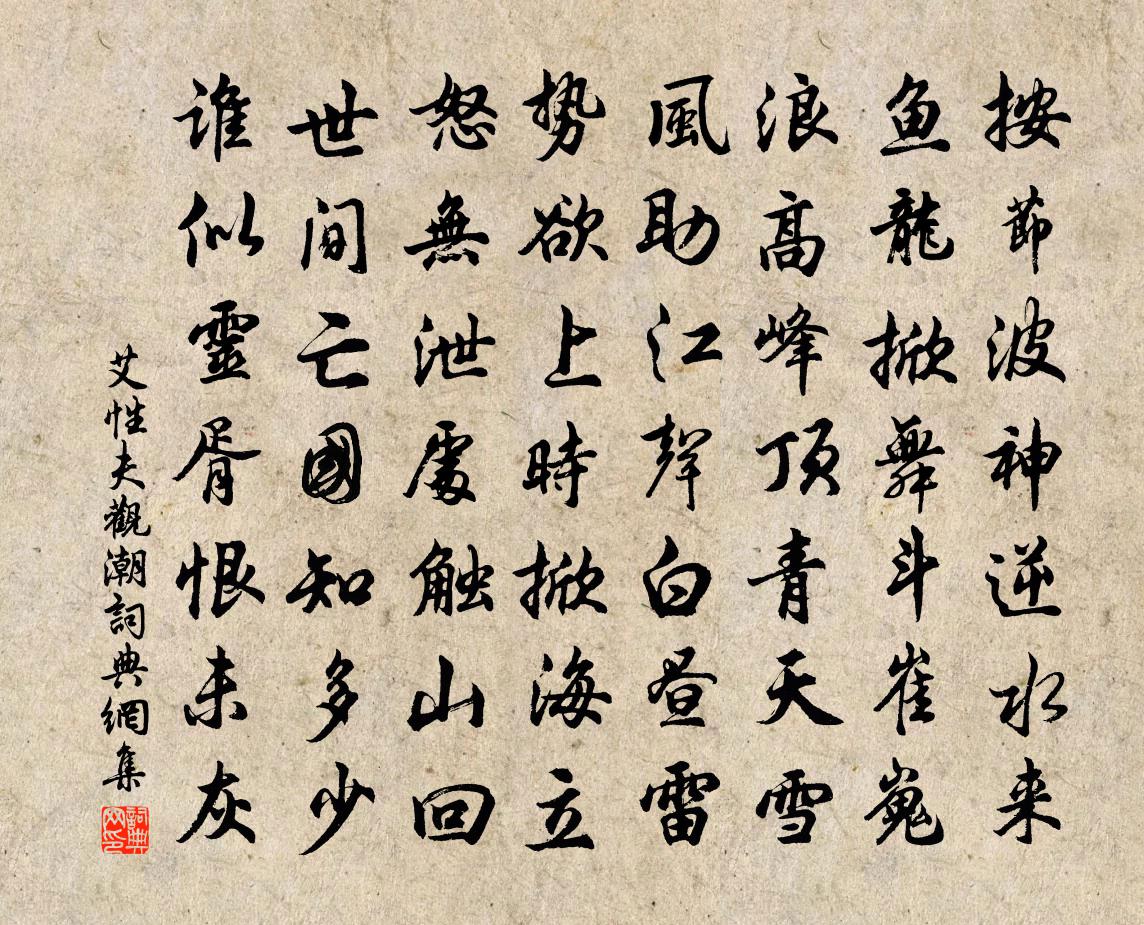 按節波神逆水来
鱼龍掀舞斗崔嵬
浪高峰頂青天雪
風助江聲白昼雷
势欲上時掀海立
怒無泄處触山回
世間亡國知多少
谁似靈胥恨未灰
艾性夫觀潮詞典網集
詞典网印